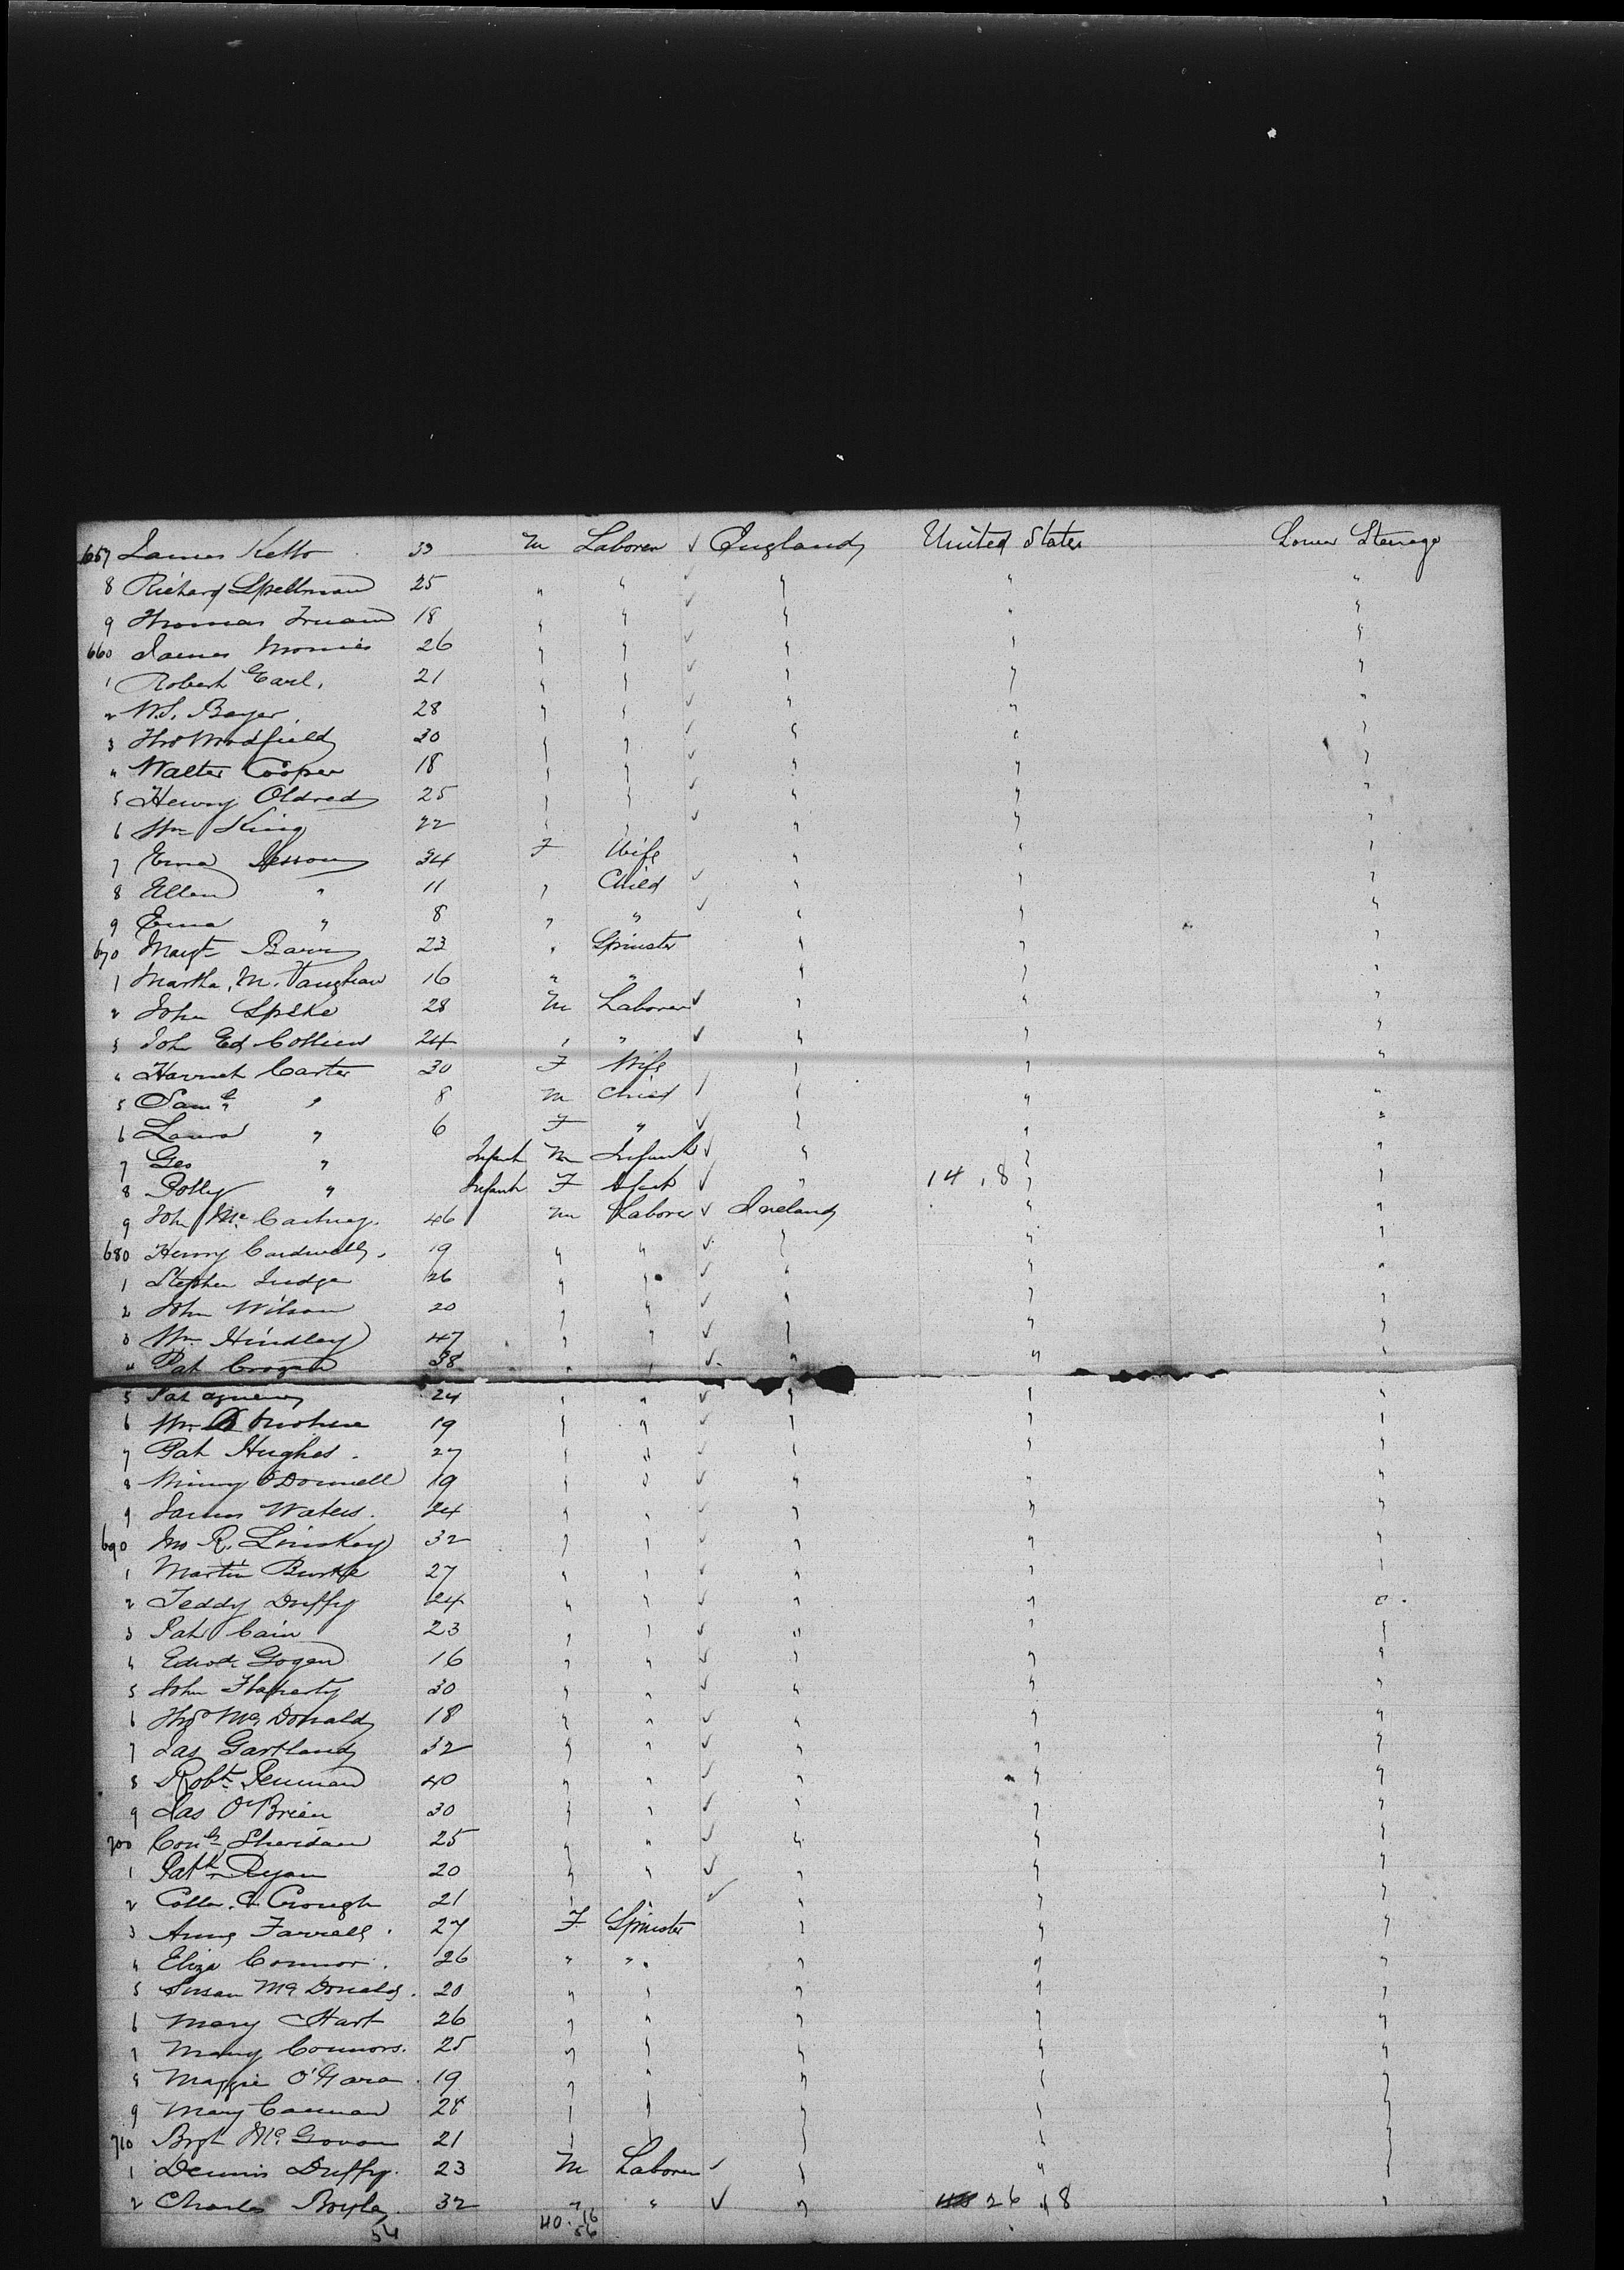 657 James Kello 33 M Laborer ✓ England United States Lower Steerage
8 Richard Spellman 25 " " ✓ " " "
9 Thomas 18 " " ✓ " " "
660 James Morris 26 " " ✓ " " "
1 Robert Earl. 21 " " ✓ " " "
2 W.S. Bayer. 28 " " ✓ " " "
3 Thos Woodfield 30 " " ✓ " " "
4 Walter Cooper 18 " " ✓ " " "
5 Henry Oldred 25 " " ✓ " " "
6 Wm King 22 " " ✓ " " "
7 Ema 34 F Wife " " "
8 Ellen " 11 " Child ✓ " " "
9 Ema " 8 " " ✓ " " "
670 Margt 23 " Spinster " " "
1 Martha. M. Vaughan 16 " " " " "
2 John Speke 28 M Laborer ✓ " " "
3 Joh Ed Collien 24 " " ✓ " " "
4 Harriet Carter 30 F Wife " " "
5 Saml " 8 M Child / " " "
6 Laura " 6 F " ✓ " " "
7 Geo " Infant M Infant ✓ " " "
8 Polly " Infant F Infant ✓ " 14 , 8 " "
9 John McCartney. 46 M Laborer ✓ Ireland " "
680 Henry Cardwell. 19 " " ✓ " " "
1 Stephen Judge 26 " " ✓ " " "
2 John Wilson 20 " " ✓ " " "
3 Wm Hindley 47 " " ✓ " " "
4 Pat Crogan 38 " " ✓ " " "
5 Pat Agnew 24 " " ✓ " " "
6 Wm 19 " " ✓ " " "
7 Pat Hughes. 27 " " ✓ " " "
8 O'Donnell 19 " " ✓ " " "
9 James Waters. 24 " " ✓ " " "
690 R. Linskey 32 " " ✓ " " "
1 Martin Burke 27 " " ✓ " " "
2 Teddy Duffy 24 " " ✓ " " "
3 Pat Cain 23 " " ✓ " " "
4 Edwd Gogan 16 " " ✓ " " "
5 John Flaherty 30 " " ✓ " " "
6 Thos McDonald 18 " " ✓ " " "
7 Jas Gartland 32 " " ✓ " " "
8 Robt 40 " " ✓ " " "
9 Jas O'Brien 30 " " ✓ " " "
700 Sheridan 25 " " ✓ " " "
1 Patk Ryan 20 " " ✓ " " "
2 Crough 21 " " ✓ " " "
3 Anne Farrell. 27 F Spinster " " "
4 Eliza Connor. 26 " " " " "
5 Susan McDonald. 20 " " " " "
6 Mary Hart 26 " " " " "
7 Mary Connors. 25 " " " " "
8 Maggie O'Gara. 19 " " " " "
9 Mary Cannan 28 " " " " "
710 Brgt McGovan 21 " " " " "
1 Dennis Duffy. 23 M Laborer ✓ " " "
2 Charles Boyle. 32 " " ✓ " 26 , 8 "
54 40. 16
56